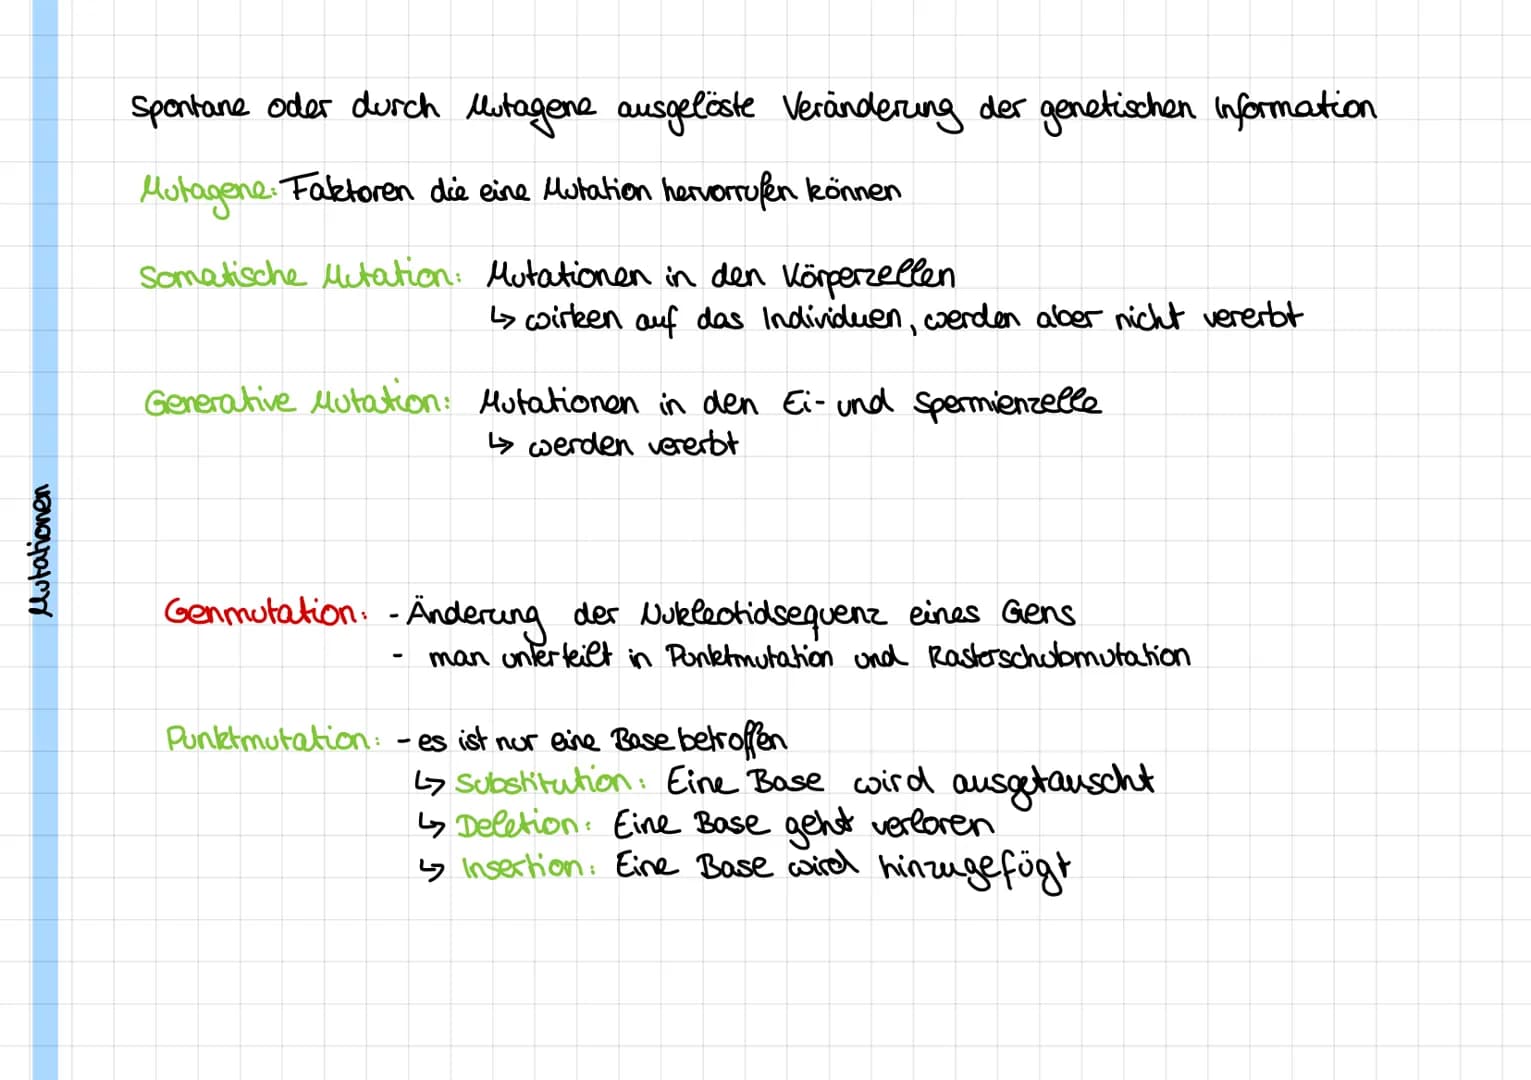 Mutationen
Spontane oder durch Mutagene ausgelöste Veränderung der genetischen Information
Mutagene: Faktoren die eine Mutation hervorrufen können
Somatische Mutation: Mutationen in den Körperzellen
↳ wirken auf das Individuen, werden aber nicht vererbt
Generative Mutation: Mutationen in den Ei- und Spermienzelle
↳ werden vererbt
Genmutation: - Änderung der Nukleotidsequenz eines Gens
- man unterteilt in Punktmutation und Rasterschubmutation
Punktmutation: - es ist nur eine Base betroffen
↳ Substitution: Eine Base wird ausgetauscht
↳ Deletion: Eine Base geht verloren
↳ Insertion: Eine Base wird hinzugefügt